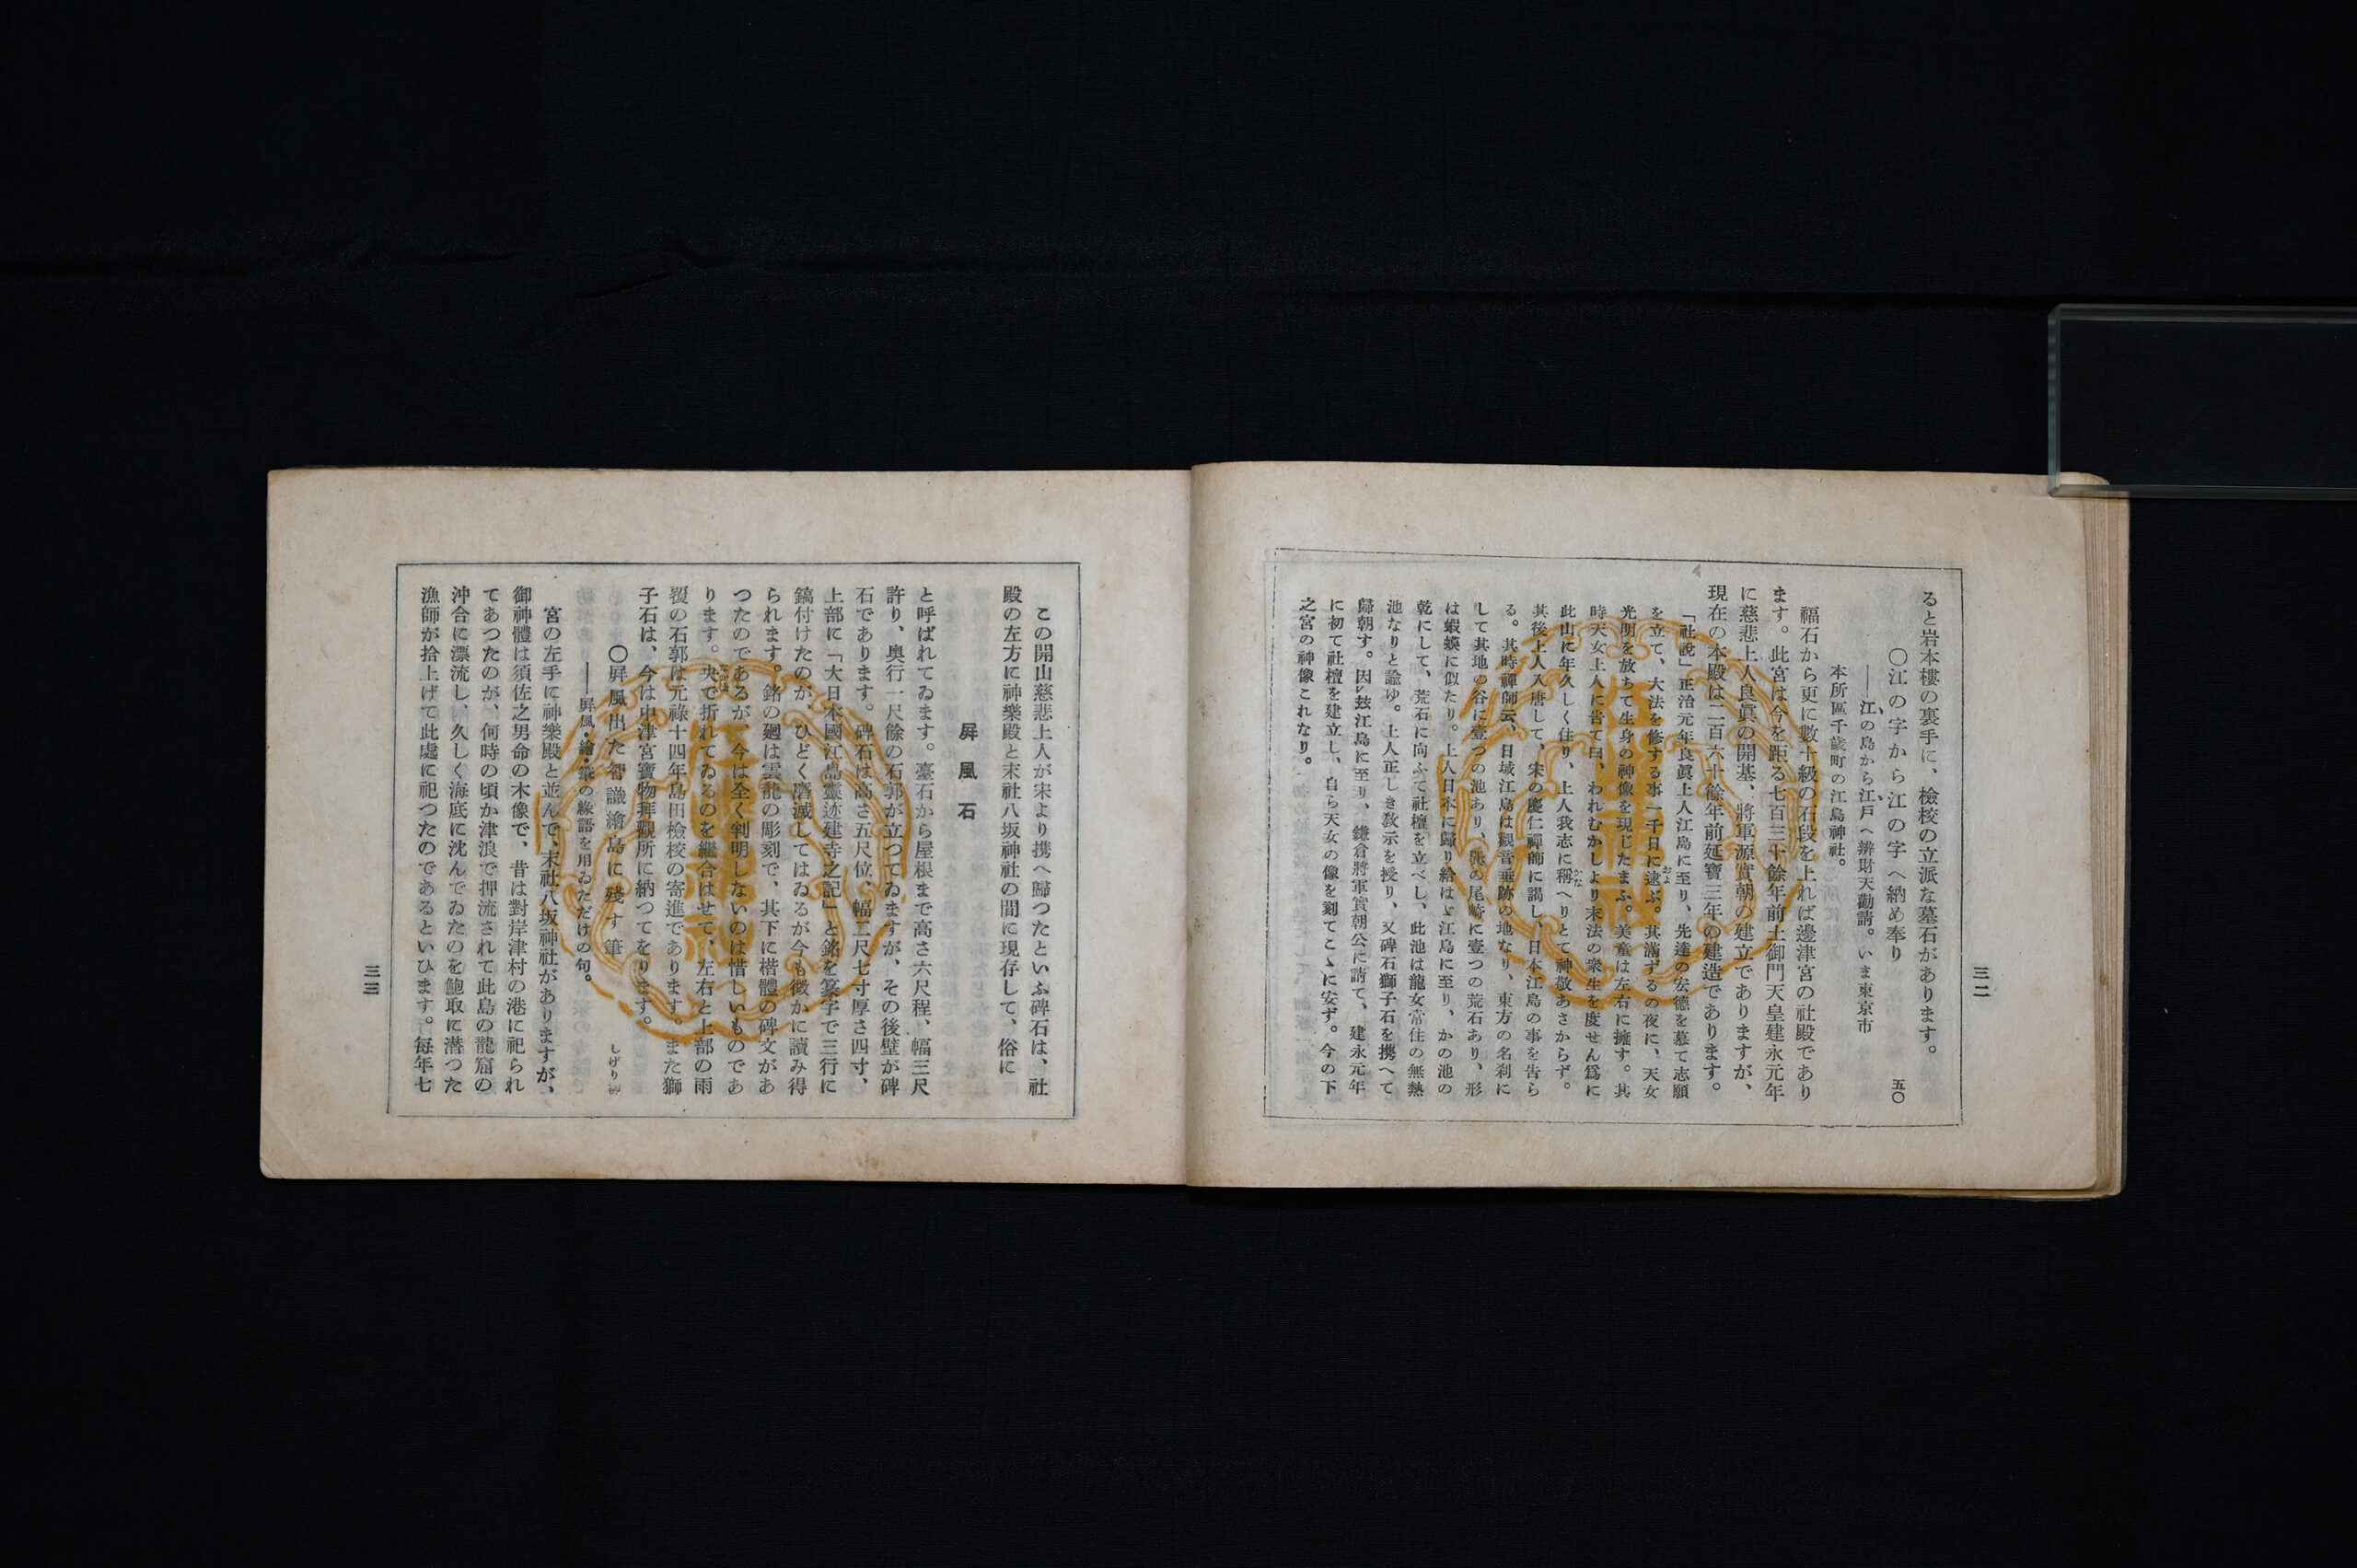 三二
ると岩本樓の裏手に、檢校の立派な墓石があります。
〇江の字から江の字へ納め奉り 五〇
――江の島から江戸へ辨財天勸請。いま東京市
本所區千歲町の江島神社。
福石から更に數十級の石段を上れば邊津宮の社殿であり
ます。此宮は今を距る七百三十餘年前土御門天皇建永元年
に慈悲上人良眞の開基、將軍源實朝の建立でありますが、
現在の本殿は二百六十餘年前延寶三年の建造であります。
「社說」正治元年良眞上人江島に至り、先達の安德を慕て志願
を立て、大法を修する事一千日に逮ぶ。其滿ずるの夜に、天女
光明を放ちて生身の神像を現じたまふ。美童は左右に擁す。其
時天女上人に告て曰、われむかしより末法の衆生を度せん爲に
此山に年久しく住り、上人我志に稱へりとて神敬あさからず。
其後上人入唐して、宋の慶仁禪師に謁し、日本江島の事を告ら
る。其時禪師云、日域江島は觀音垂跡の地なり、東方の名刹に
して其地の谷に壹つの池あり、池の尾崎に壹つの荒石あり、形
は蝦蟆に似たり。上人日本に歸り給はゞ江島に至り、かの池の
乾にして、荒石に向ふて社檀を立べし、此池は龍女常住の無熱
池なりと諭ゆ。上人正しき敎示を授り、又碑石獅子石を携へて
歸朝す。因て玆江島に至り、鎌倉將軍實朝公に請て、建永元年
に初て社檀を建立し、自ら天女の像を刻てこゝに安ず。今の下
之宮の神像これなり。
この開山慈悲上人が宋より携へ歸つたといふ碑石は、社
殿の左方に神樂殿と末社八坂神社の間に現存して、俗に
屛風石
と呼ばれてゐます。臺石から屋根まで高さ六尺程、幅三尺
許り、奧行一尺餘の石郭が立つてゐますが、その後壁が碑
石であります。碑石は高さ五尺位、幅二尺七寸厚さ四寸、
上部に「大日本國江島靈迹建寺之記」と銘を篆字で三行に
鎬付けたのが、ひどく磨滅してはゐるが今も微かに讀み得
られます。銘の廻は雲龍の彫刻で、其下に楷體の碑文があ
つたのであるが、今は全く判明しないのは惜しいものであ
ります。央で折れてゐるのを繼合はせて、左右と上部の雨
覆の石郭は元祿十四年島田檢校の寄進であります。また獅
子石は、今は中津宮寶物拜觀所に納つてをります。
〇屛風出た智識繪島に殘す筆 しげり
――屛風・繪・筆の緣語を用ゐただけの句。
宮の左手に神樂殿と並んで、末社八坂神社がありますが、
御神體は須佐之男命の木像で、昔は對岸津村の港に祀られ
てあつたのが、何時の頃か津浪で押流されて此島の龍窟の
沖合に漂流し、久しく海底に沈んでゐたのを鮑取に潛つた
漁師が拾上げて此處に祀つたのであるといひます。每年七
三三